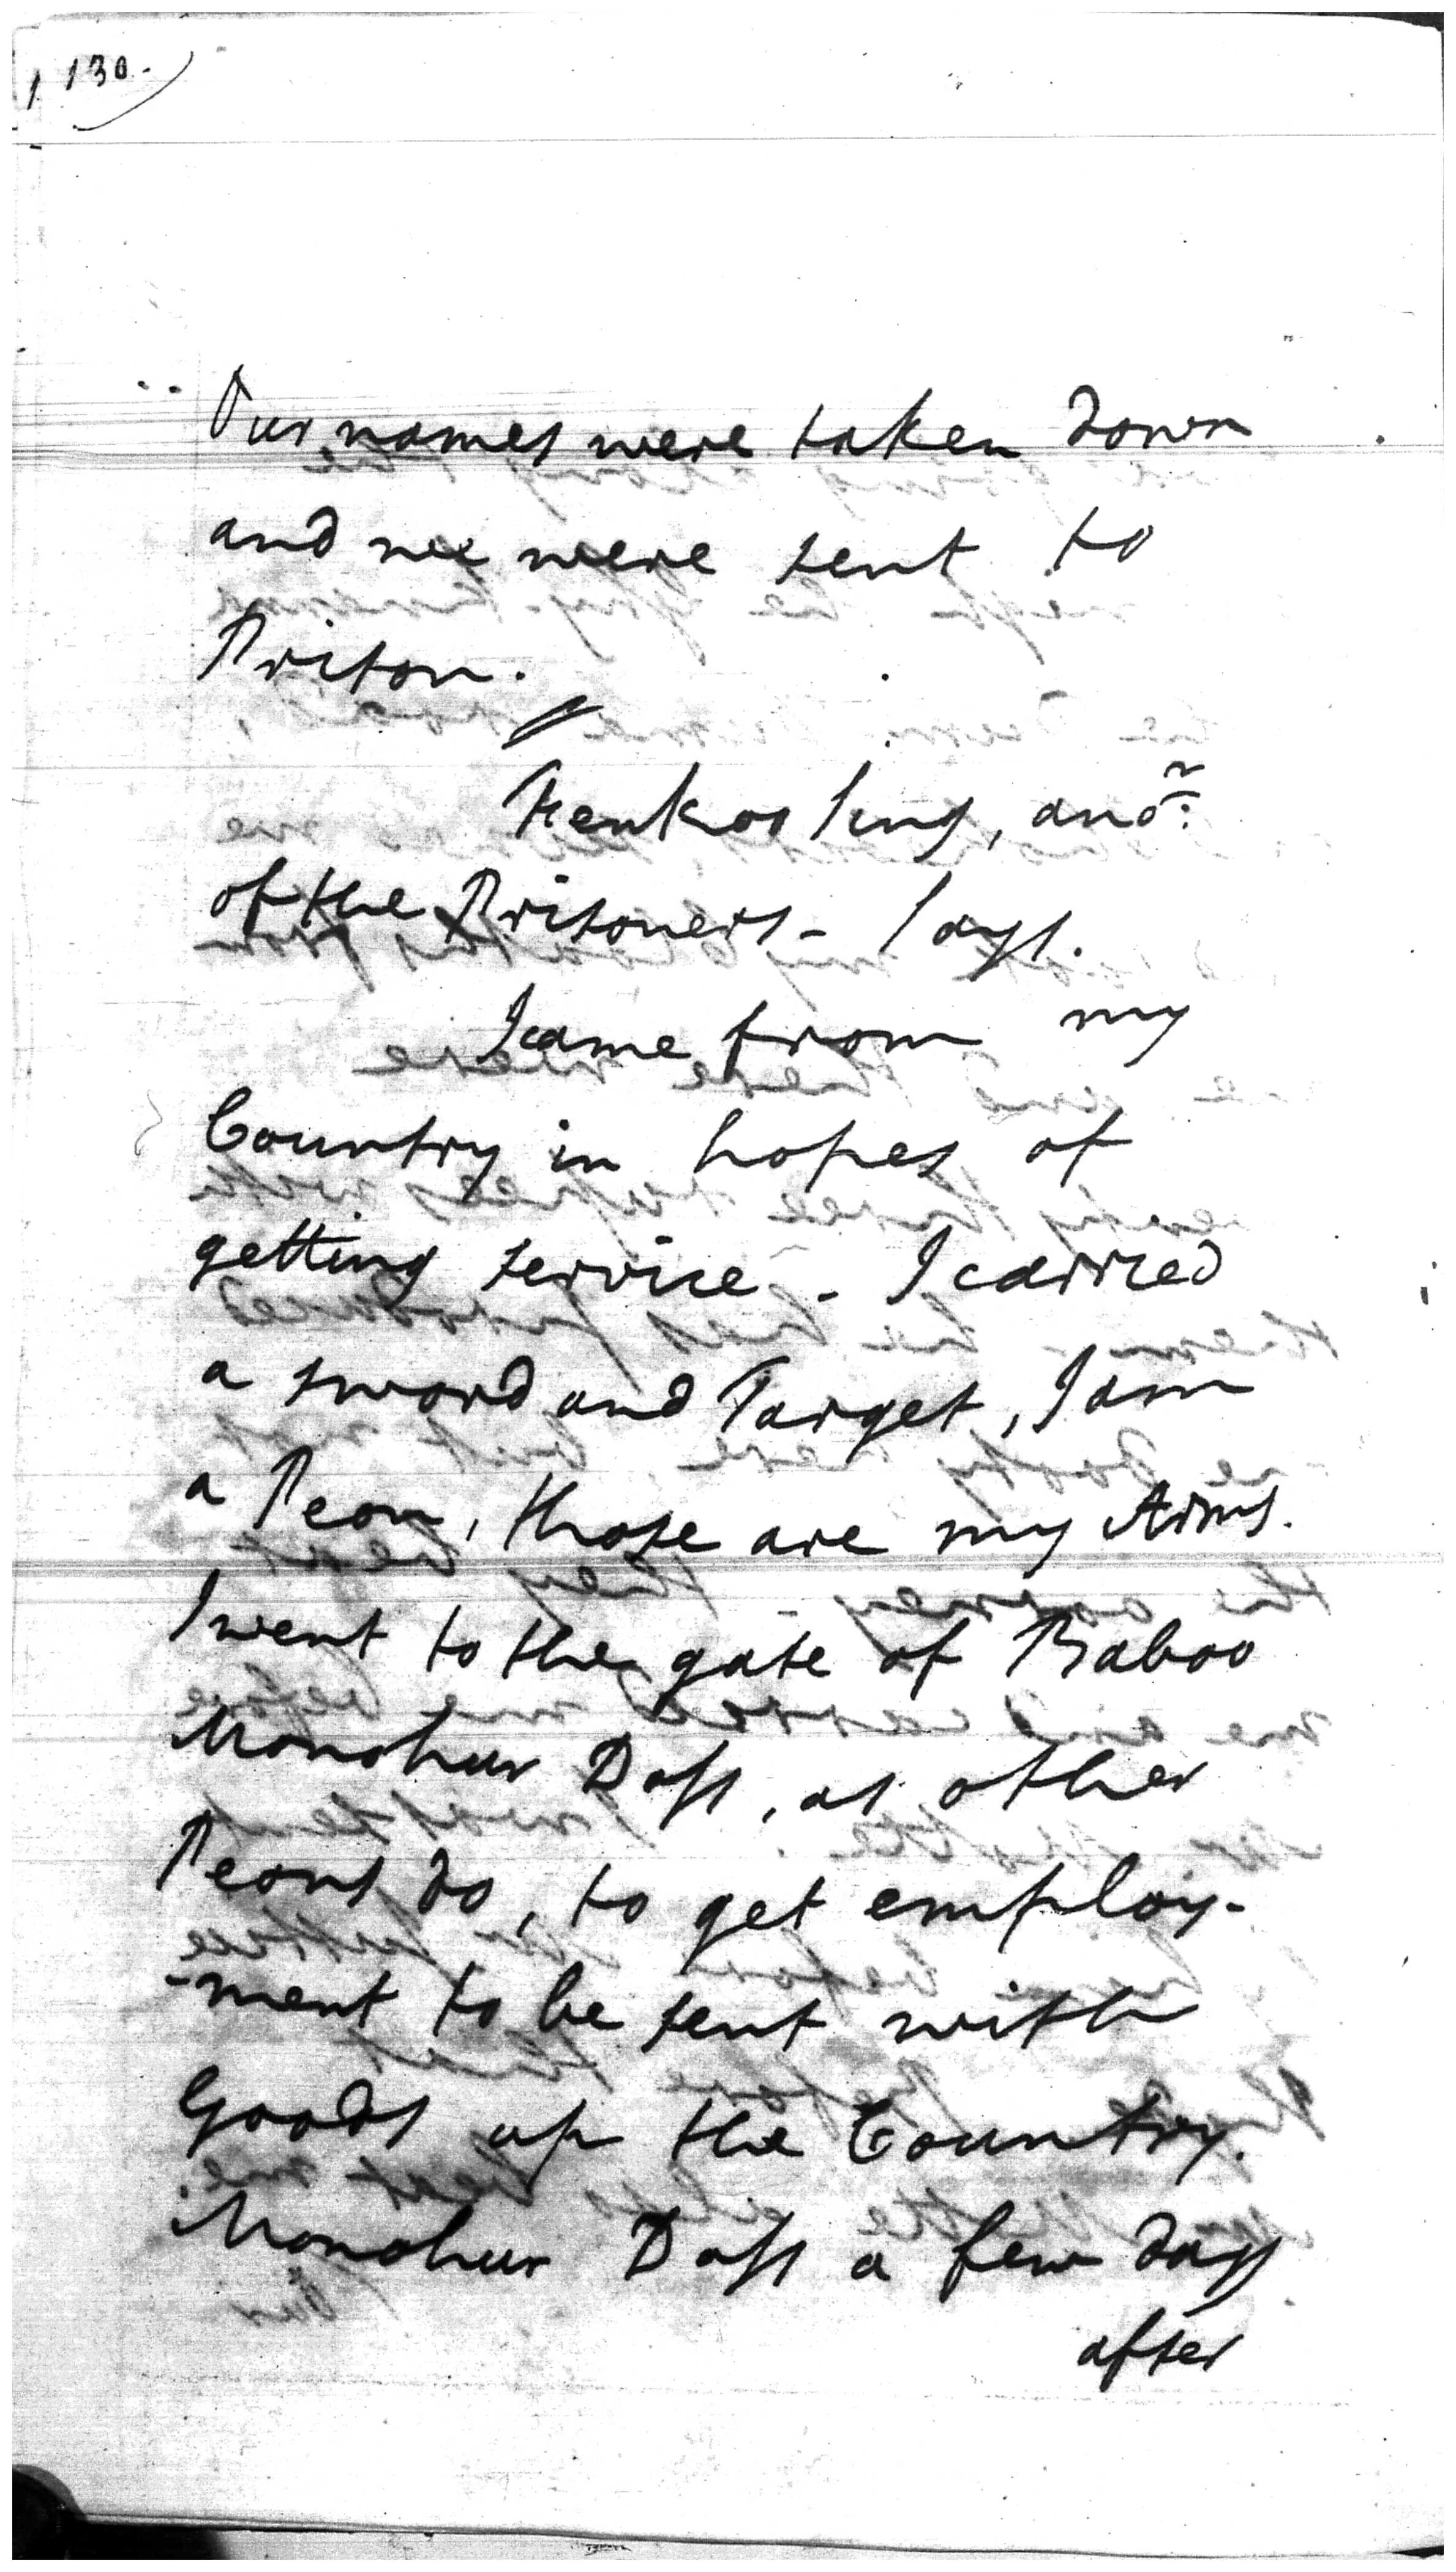 130.
Our names were taken down
and we were sent to
Prison.
Sing, anor.
of the Prisoners - Says.
I came from my
Country in hopes of
getting service - I carried
a sword and Target, I am
a Peon, those are my Arms.
I went to the gate of Baboo
Monohur Doss, as other
Peons do, to get employ-
-ment to be sent with
Goods up the Country.
Monohur Doss a few days
after